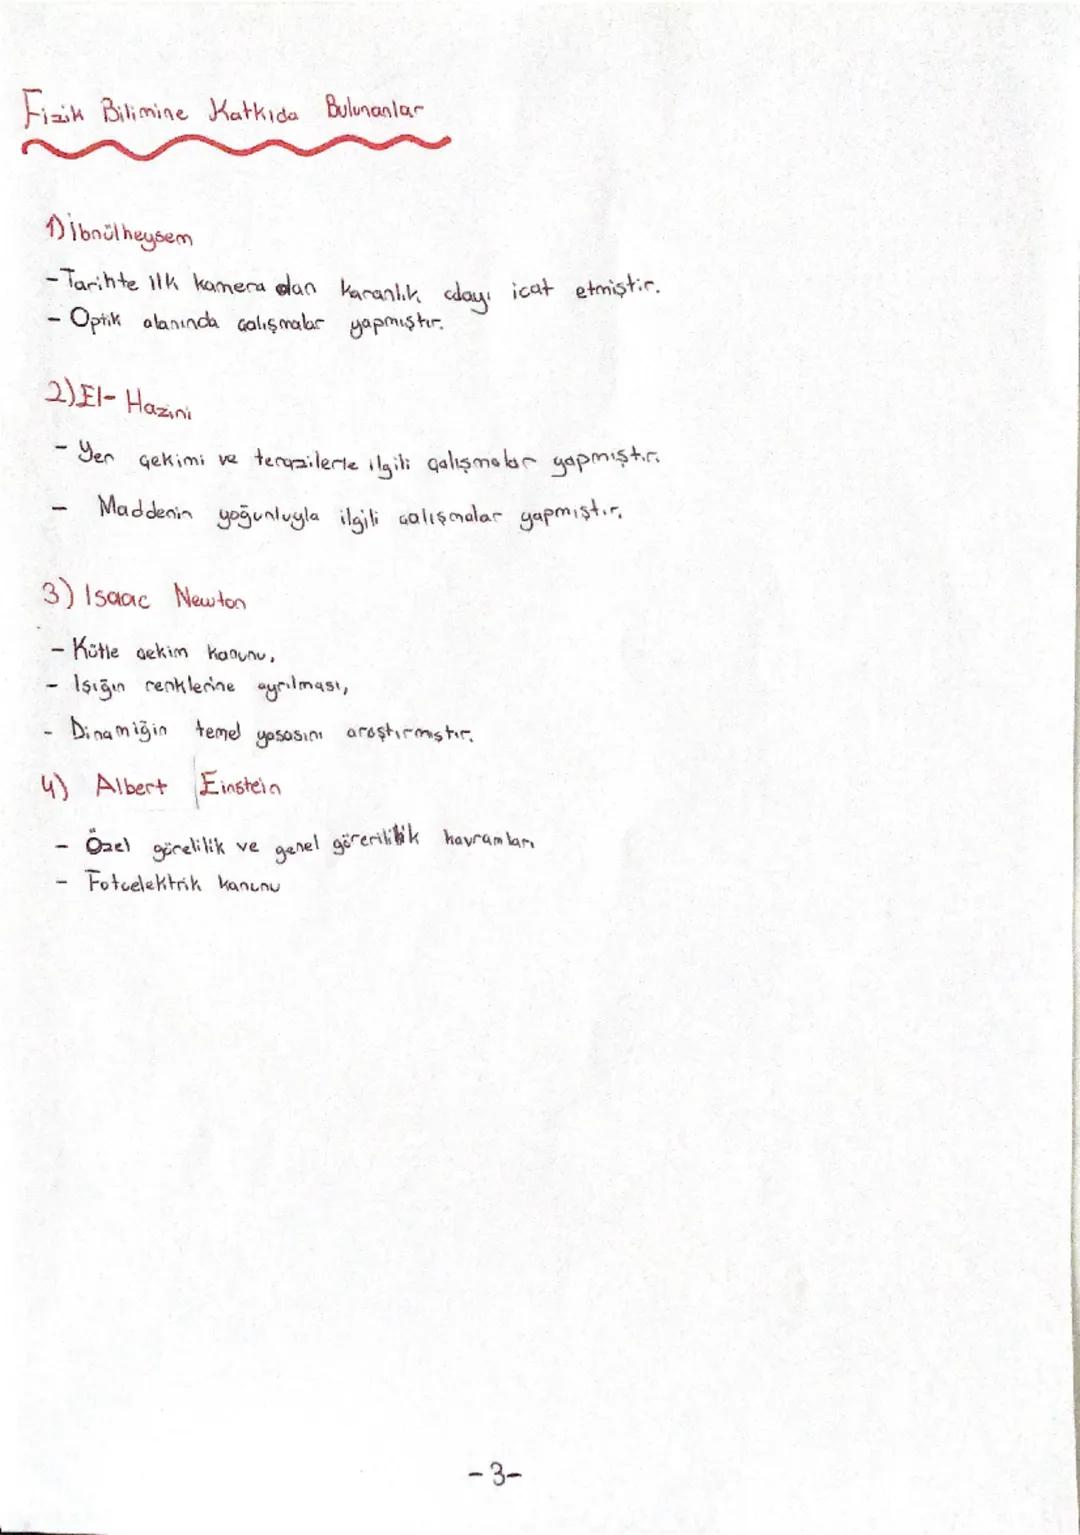 Fizik Bilimine Katkıda Bulunanlar
1) İbnülheysem
- Tarihte ilk kamera olan karanlık odayı icat etmiştir.
- Optik alanında çalışmalar yapmıştır.
2) El- Hazini
- Yer çekimi ve terazilerle ilgili çalışmalar yapmıştır.
- Maddenin yoğunluğla ilgili çalışmalar yapmıştır.
3) Isaac Newton
- Kütle çekim kanunu,
- Işığın renklerine ayrılması,
- Dinamiğin temel yasasını araştırmıştır.
4) Albert Einstein
- Özel görelilik ve genel görerililik kavramları
- Fotoelektrik kanunu
- 3 -